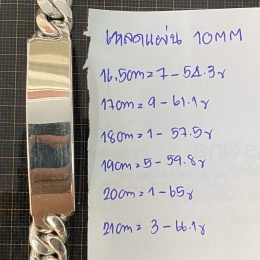 เลสแผ่น 10MM
16.5cm = 7 - 54.3g
17cm = 9 - 61.1g
18cm = 1 - 57.5g
19cm = 5 - 59.8g
20cm = 1 - 65g
21cm = 3 - 66.1g